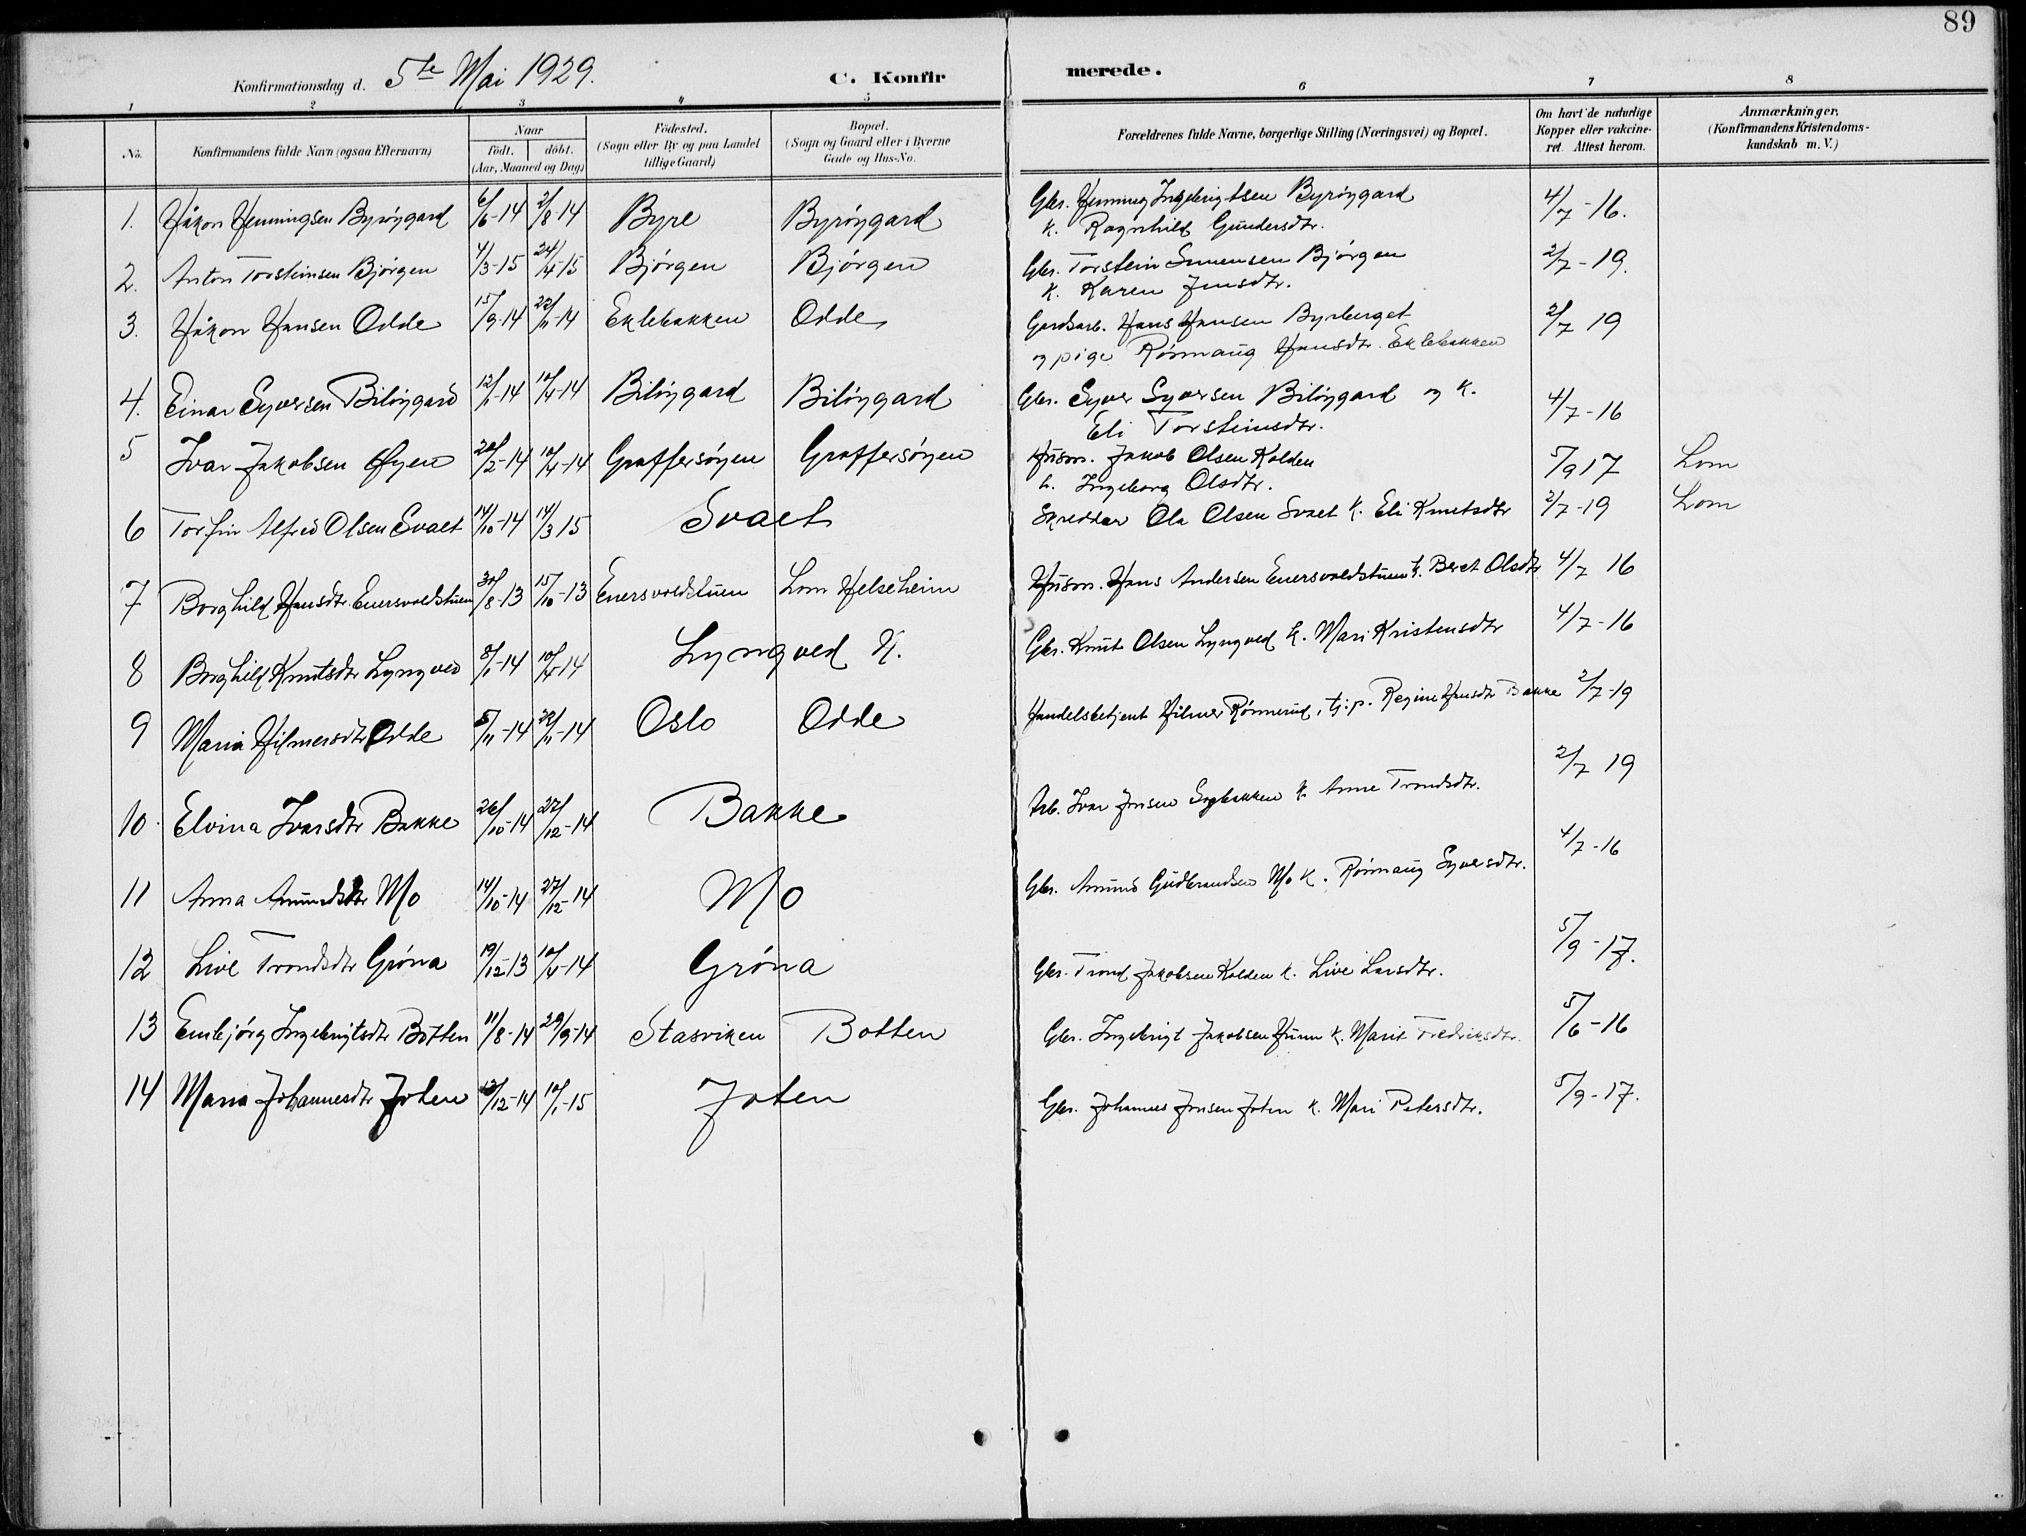 89
Konfirmationsdag d. 5te Mai 1929. C. Konfirmerede.
1 2 3 4 5 6 7 8
No. Konfirmandens fulde Navn (ogsaa Efternavn) Naar födt. döbt. (Aar, Maaned og Dag) Födested. (Sogn eller By og paa Landet tillige Gaard) Bopæl. (Sogn og Gaard eller i Byerne Gade og Hus-No. Forældrenes fulde Navne, borgerlige Stilling (Næringsvei) og Bopæl. Om havt de naturlige Kopper eller vakcineret. Attest herom. Anmærkninger, (Konfirmandens Kristendomskundskab m. V.)
1. Håkon Henningsen Byröygard 6/6-14 2/8 14 Byre Byröygard Gbr. Henning Ingebrigtsen Byröygard 4/7-16.
k. Ragnhild Gundersdtr.
2. Anton Torsteinsen Björgen 4/3-15 24/4-15 Björgen Björgen Gbr. Torstein Simensen Björgen 2/7-19.
k. Karen Jensdtr.
3. Håkon Hansen Odde 15/9-14 22/11-14 Eklebakken Odde Gardsarb. Hans Hansen Byrberget 2/7 19
og pige Rönnaug Hansdtr. Eklebakken
4. Einar Syversen Bilöygard 12/1-14 10/4-14 Bilöygard Bilöygard Gbr. Syver Syversen Bilöygard og k. 4/7-16
Eli Torsteinsdtr.
5 Ivar Jakobsen Öyen 20/2-14 10/4-14 Graffersöyen Graffersöyen Husm. Jakob Olsen Kolden 5/9 17 Lom
h. Ingeborg Olsdtr.
6 Torfin Alfred Olsen Svaet 14/10-14 14/3 15 Svaet Skredder Ola Olsen Svaet k. Eli Knutsdtr 2/7-19 Lom
7 Borghild Hansdtr. Enersvoldstuen 30/8-13 15/10-13 Enersvoldstuen Lom Helseheim Husm. Hans Andersen Enersvoldstuen k. Beret Olsdtr 4/7 16
8 Borghild Knutsdtr Lyngved 8/1-14 10/4-14 Lyngved N. Gbr. Knut Olsen Lyngved k. Mari Kristensdtr 4/7-16
9 Maria Hilmersdtr Odde 5/11-14 22/11-14 Oslo Odde Handelsbetjent Hilmer Rönnerud, tj.p. Regine Hansdtr Bakke 2/7-19
10. Elvina Ivarsdtr Bakke 26/10-14 27/12-14 Bakke Arb. Ivar Jonsen k. Anne Trondsdtr. 2/7 19
11 Anna Amundsdtr Mo 14/10-14 27/12-14 Mo Gbr. Amund Gudbrandsen Mo k. Rönnaug Syversdtr. 4/7-16
12 Live Trondsdtr Gröna 19/12-13 10/4-14 Gröna Gbr. Trond Jakobsen Kolden k. Live Larsdtr. 5/9-17.
13 Embjörg Ingebrigtsdtr Botten 11/8-14 29/9-14 Stasviken Botten Gbr. Ingebrigt Jakobsen k. Marit Fredriksdtr. 5/6-16
14 Maria Johannesdtr Joten 12-14 10/1-15 Joten Gbr. Johannes Jonsen Joten k. Mari Petersdtr. 5/9-17.